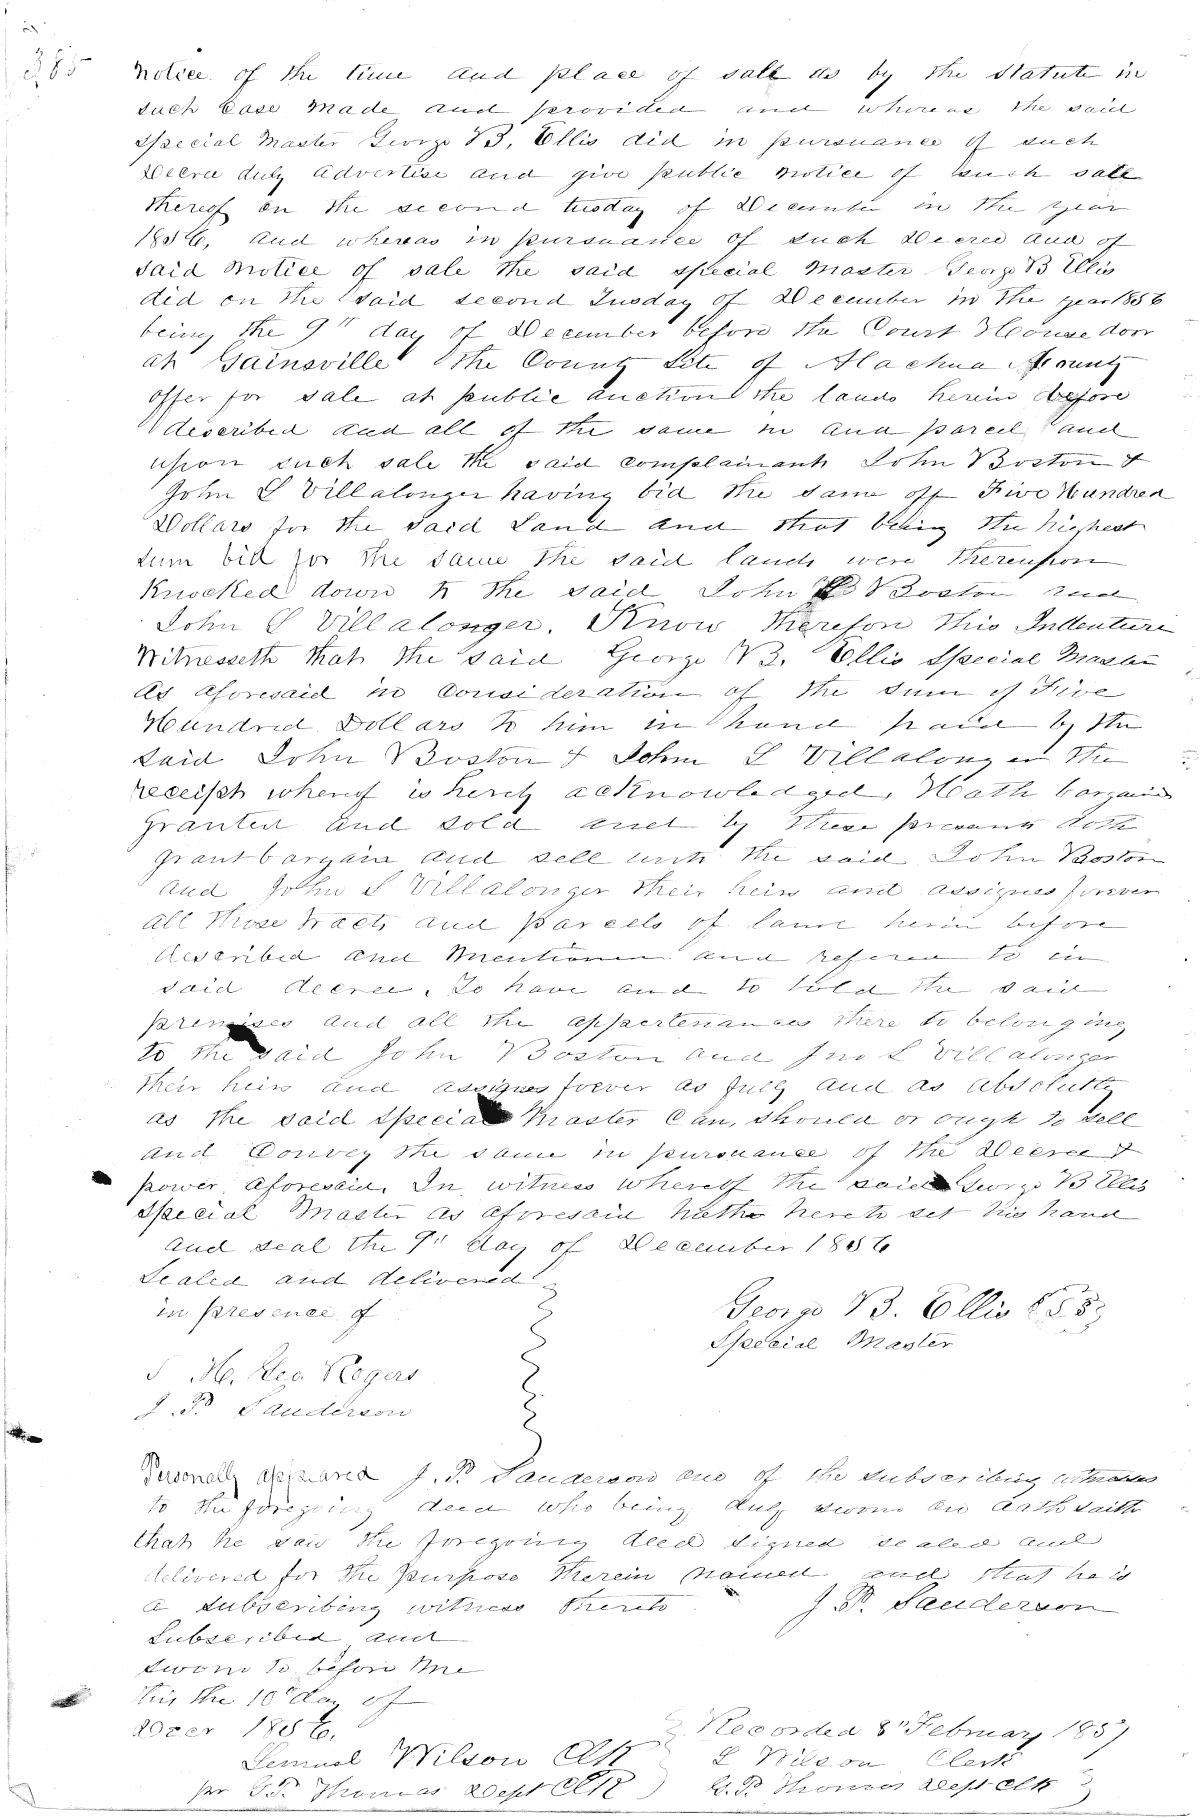 385
Notice of the time and place of sale as by the Statute in
such Case Made and provided and whereas the said
special Master George B. Ellis did in pursuance of such
Decree duly advertise and give public notice of such sale
thereof on the second tusday of December in the year
1856, and whereas in pursuance of such Decree and of
said notice of sale the said special Master George B Ellis
did on the said second Tusday of December in the year 1856
being the 9th day of December before the Court House door
at Gainsville the County Site of Alachua County
offer for sale at public auction the lands herein before
described and all of the same in and parcel and
upon such sale the said complainants John Boston &
John L Villalonger having bid the same off Five Hundred
Dollars for the said Land and that being the highest
sum bid for the same the said lands were thereupon
Knocked down to the said John Boston and
John L Villalonger. Know therefon this Indenture
Witnesseth that the said George B. Ellis Special Master
as aforesaid in consideration of the sum of Five
Hundred Dollars to him in hand paid by the
said John Boston & John L Villalonger the
receipt whereof is herety acknowledged, Hath bargained
granted and sold and by these presents doth
grant bargain and sell unto the said John Boston
and John L Villalonger their heirs and assignes forever
all those tracts and parcels of land herin before
described and mentioned and refered to in
said decree. To have and to hold the said
premises and all the appertenances there to belonging
to the said John Boston and Jno L Villalonger
their heirs and assignes forever as fully and as absolutly
as the said special Master Can, should or ought to sell
and Convey the same in pursuance of the Decree &
power aforesaid. In witness whereof the said George B Ellis
Special Master as aforesaid hath hereto set his hand
and seal the 9th day of December 1856
Sealed and delivered
in presence of
George B. Ellis
Special Master
S H. Geo. Rogers
J. P. Sanderson
Personally appeared J. P. Sanderson one of the subscribing witnesses
to the foregoing deed who being duly sworn on oath saith
that he saw the foregoing deed signed sealed and
delivered for the purpose therein named and that he is
a subscribing witness thereto J. P. Sanderson
Subscribed and
sworn to before me
this the 10th day of
Dcer 1856.
Lemuel Wilson Clk
pr G.P. Thomas Dept Clk
Recorded 8th February 1857
L Wilson Clerk
G.P. Thomas Dept Clk